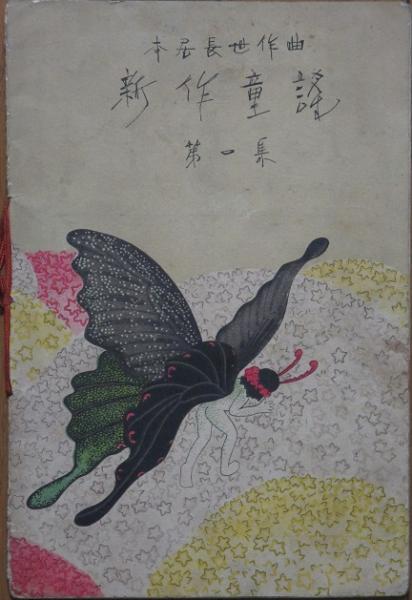 本居長世作曲
新作童謡
第一集